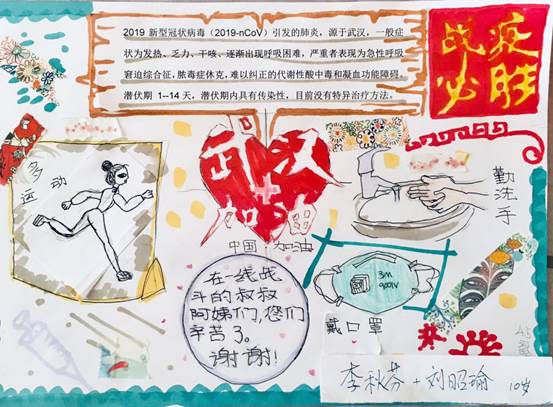 2019 新型冠状病毒（2019-nCoV）引发的肺炎，源于武汉，一般症
状为发热、乏力、干咳、逐渐出现呼吸困难，严重者表现为急性呼吸
窘迫综合征，脓毒症休克，难以纠正的代谢性酸中毒和凝血功能障碍。
潜伏期 1--14 天，潜伏期内具有传染性，目前没有特异治疗方法。
战疫
必胜
多运动
武汉
加油
中国 加油
勤洗手
在一线战
斗的叔叔
阿姨们，您们
辛苦了。
谢谢！
3M
戴口罩
李秋芬 + 刘昭瑜 10岁